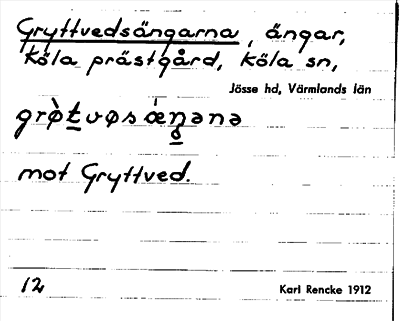 Gryttvedsängarna, ängar,
Köla prästgård, Köla sn,
Jösse hd, Värmlands län
mot Gryttved.
12
Karl Rencke 1912